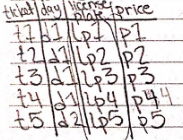 ticket day license plate price
t1 d1 lp1 p1
t2 d1 lp2 p2
t3 d1 lp3 p3
t4 d1 lp4 p4 4
t5 d2 lp5 p5